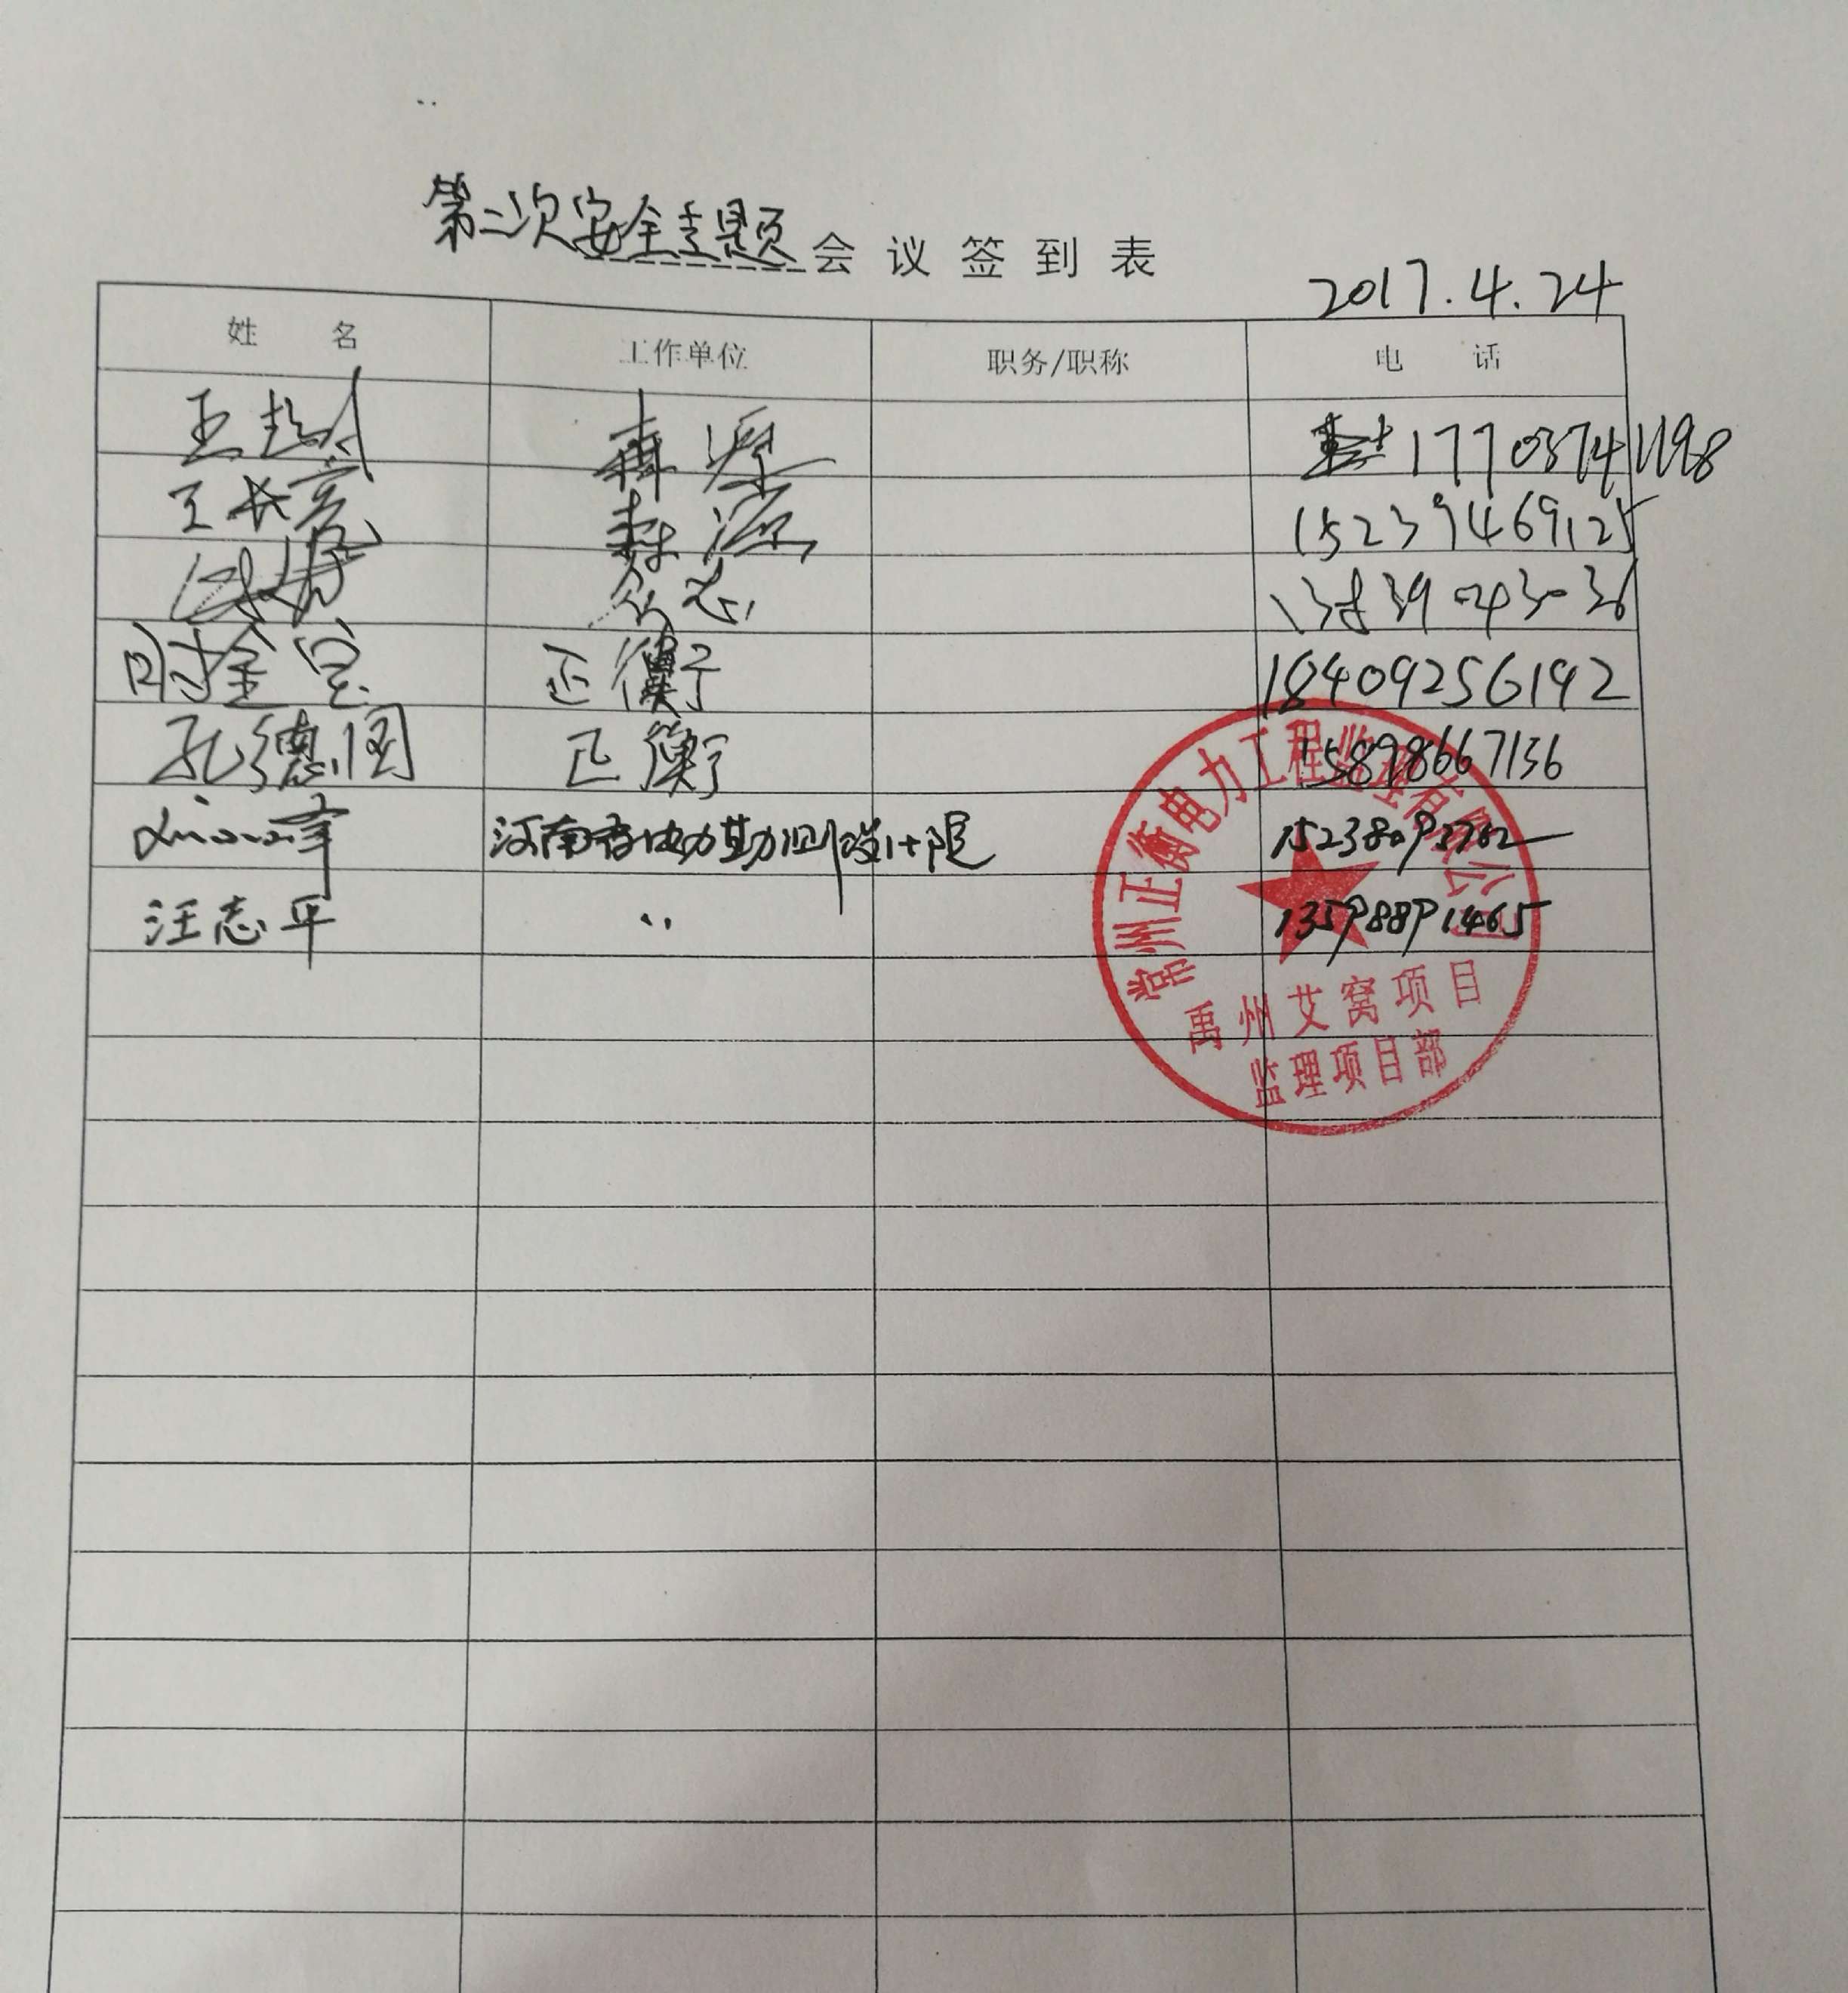 第二次安全专题会议签到表
2017.4.24
姓 名 工作单位 职务/职称 电 话
王 森源 17703741198
王长亮 森源 15239469125
众志
时金宝 正衡 18409256192
孔德国 正衡 15898667136
峰 河南省电力勘测设计院 15238093762
汪志平 〃 13598891465
常州正衡电力工程监理有限公司
禹州艾窝项目
监理项目部